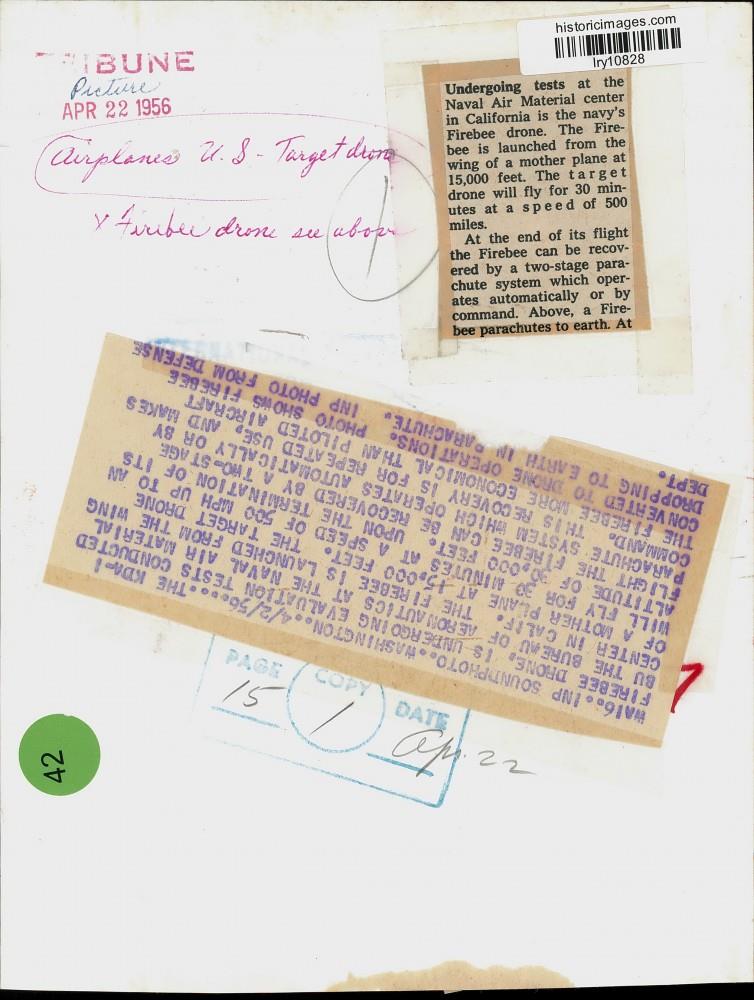 historicimages.com
lry10828
TRIBUNE
Picture
APR 22 1956
Airplanes U.S - Target drone
x Firebee drone see above
Undergoing tests at the
Naval Air Material center
in California is the navy's
Firebee drone. The Fire-
bee is launched from the
wing of a mother plane at
15,000 feet. The target
drone will fly for 30 min-
utes at a speed of 500
miles.
At the end of its flight
the Firebee can be recov-
ered by a two-stage para-
chute system which oper-
ates automatically or by
command. Above, a Fire-
bee parachutes to earth. At
WA16..INP SOUNDPHOTO...WASHINGTON...4/2/56....THE KDA-1
FIREBEE DRONE, IS UNDERGOING EVALUATION TESTS CONDUCTED
BU THE BUREAU OF AERONAUTICS AT THE NAVAL AIR MATERIAL
CENTER IN CALIF. THE FIREBEE IS LAUNCHED FROM THE WING
OF A MOTHER PLANE AT 15,000 FEET. THE TARGET DRONE
WILL FLY FOR 30 MINUTES AT A SPEED OF 500 MPH UP TO AN
ALTITUDE OF 30,000 FEET. UPON THE TERMINATION OF ITS
FLIGHT THE FIREBEE CAN BE RECOVERED BY A TWO-STAGE
PARACHUTE SYSTEM WHICH OPERATES AUTOMATICALLY OR BY
COMMAND. THIS RECOVERY IS FOR REPEATED USE, AND MAKES
THE FIREBEE MORE ECONOMICAL THAN PILOTED AIRCRAFT
CONVERTED TO DRONE OPERATIONS. PHOTO SHOWS FIREBEE
DROPPING TO EARTH IN PARACHUTE. INP PHOTO FROM DEFENSE
DEPT.
PAGE COPY DATE
15 1 Apr. 22
42